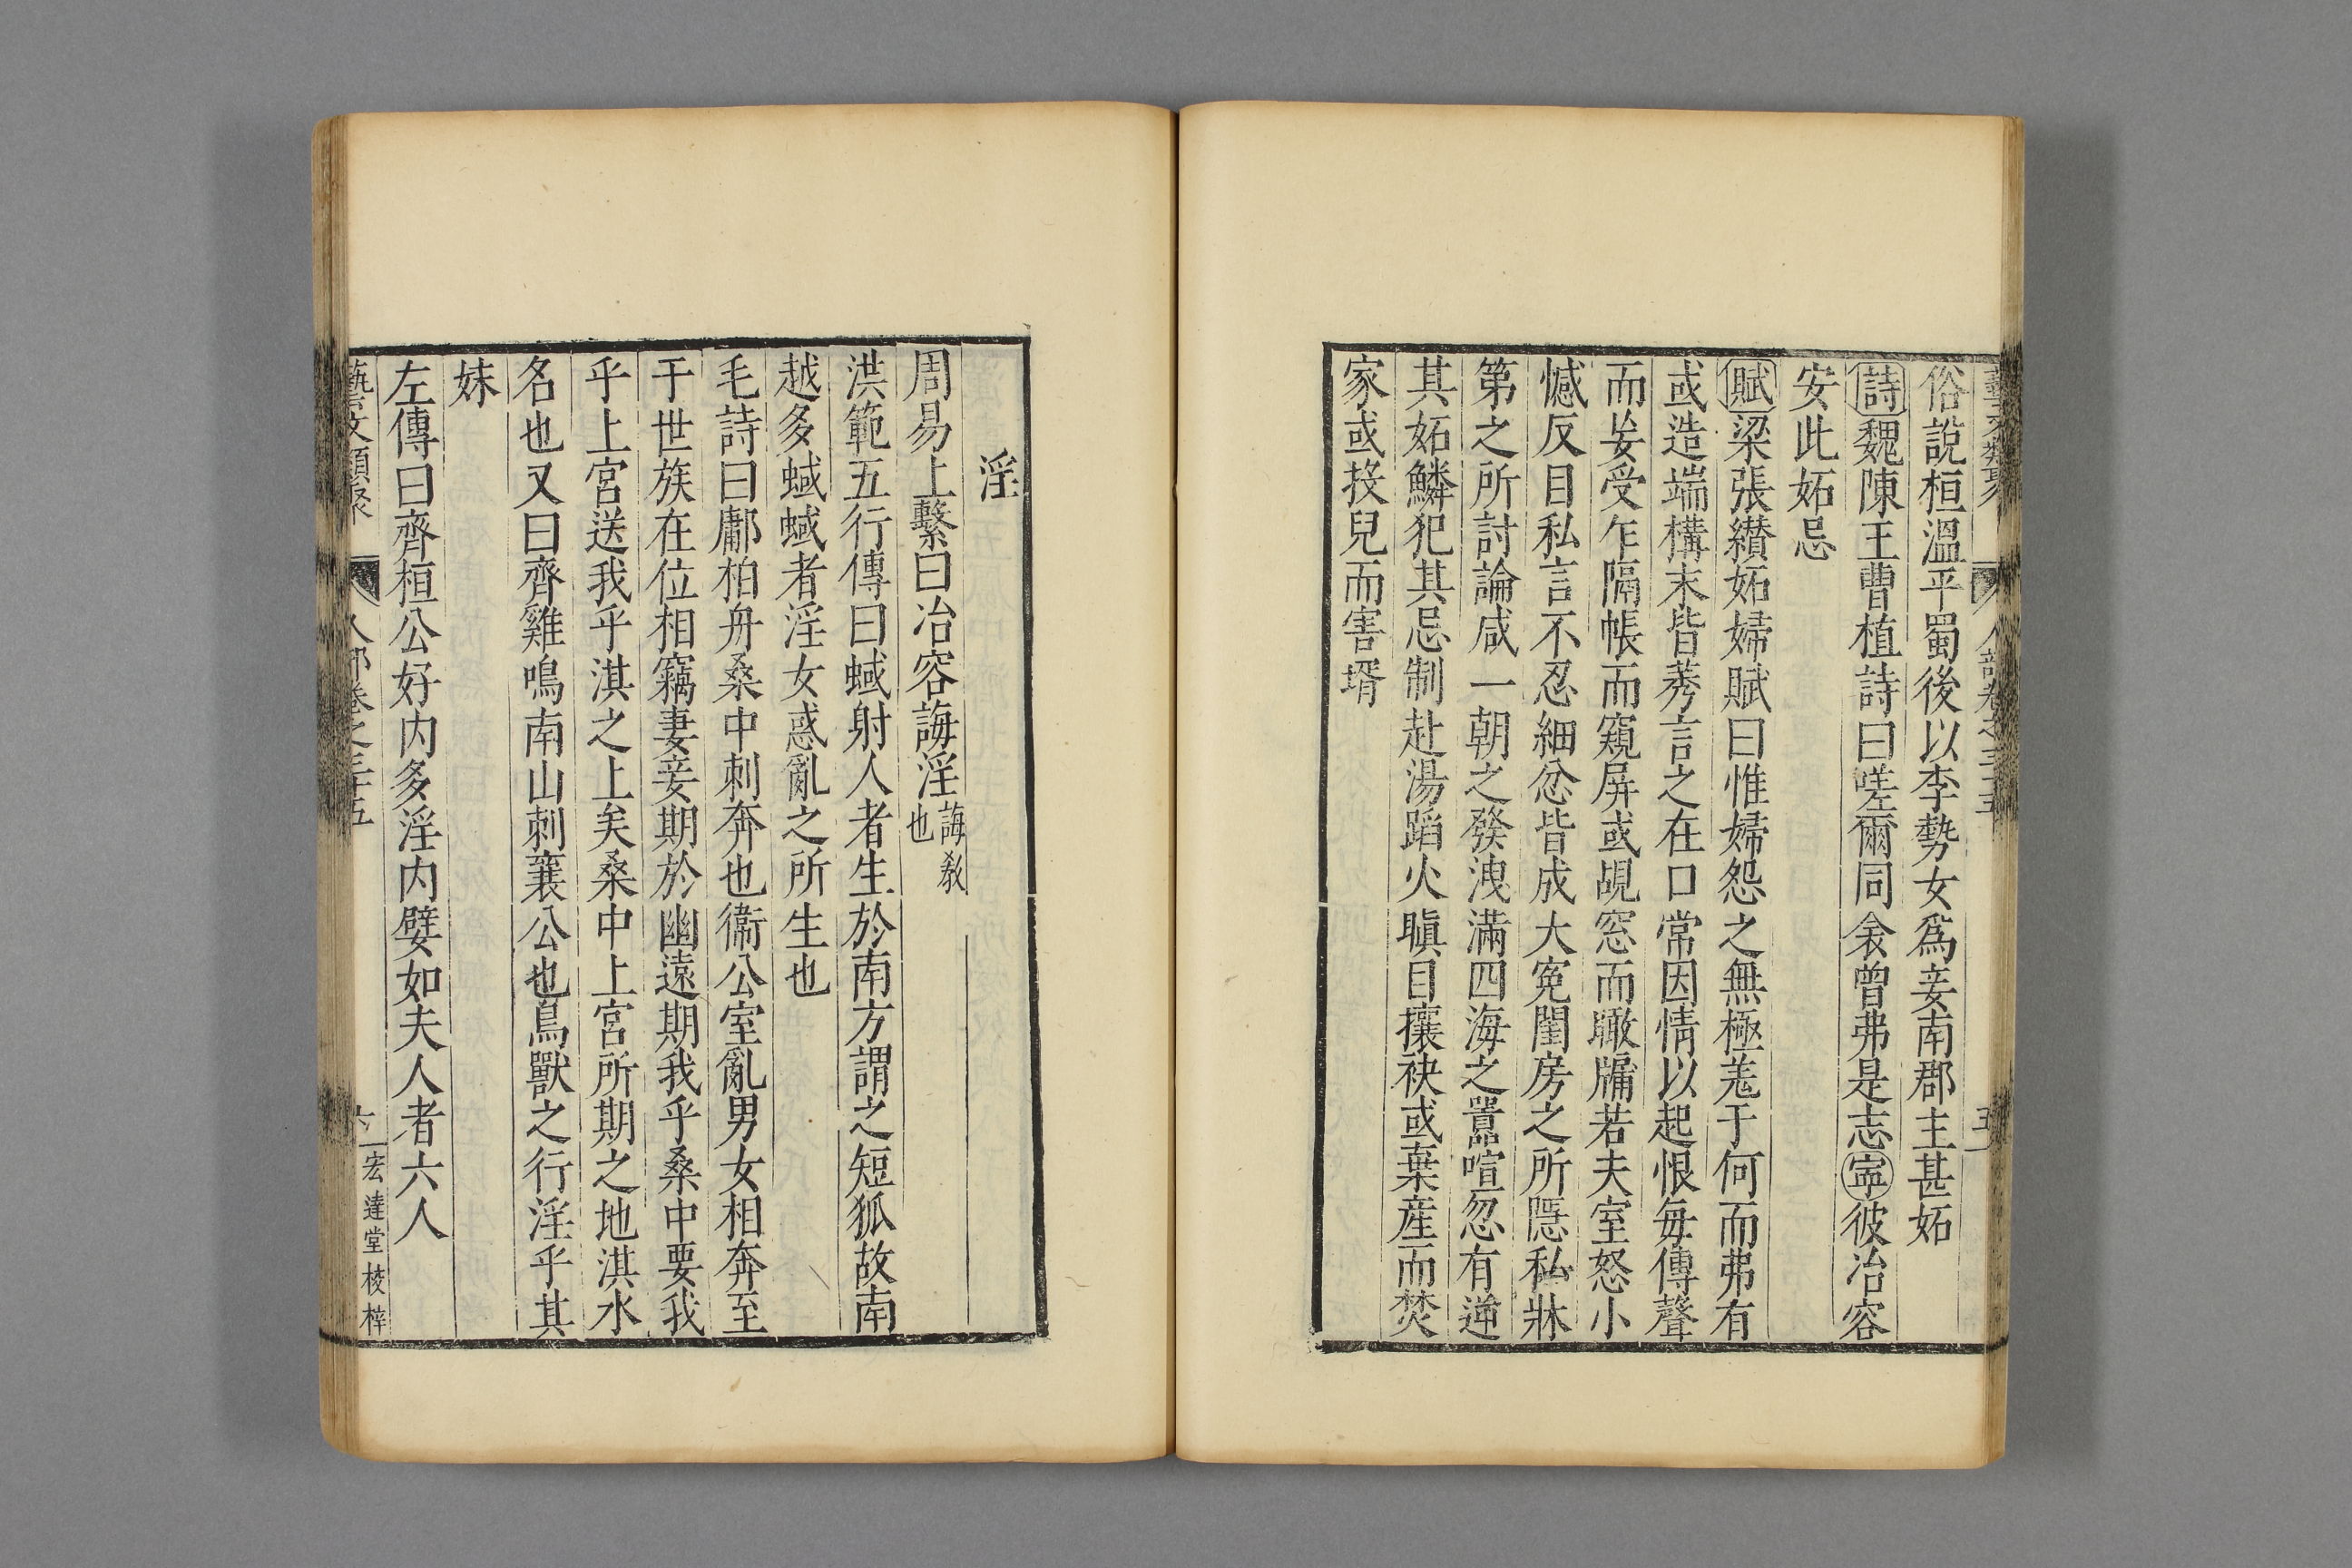 藝文類聚 人部卷之三十五 五
俗說桓溫平蜀後以李勢女爲妾南郡主甚妬
詩魏陳王曹植詩曰嗟爾同衾曾弗是志寧彼冶容
安此妬忌
賦梁張纘妬婦賦曰惟婦怨之無極羌于何而弗有
或造端構末皆莠言之在口常因情以起恨每傳聲
而妄受乍隔帳而窺屏或覘窓而瞰牖若夫室怒小
憾反目私言不忍細忿皆成大寃閨房之所隱私牀
第之所討論咸一朝之發洩滿四海之囂喧忽有逆
其妬鱗犯其忌制赴湯蹈火瞋目攘袂或棄産而焚
家或投兒而害壻
淫
周易上繫曰冶容誨淫誨敎也
洪範五行傳曰蜮射人者生於南方謂之短狐故南
越多蜮蜮者淫女惑亂之所生也
毛詩曰鄘柏舟桑中刺奔也衞公室亂男女相奔至
于世族在位相竊妻妾期於幽遠期我乎桑中要我
乎上宮送我乎淇之上矣桑中上宮所期之地淇水
名也又曰齊雞鳴南山刺襄公也鳥獸之行淫乎其
妹
左傳曰齊桓公好内多淫内嬖如夫人者六人
藝文類聚 人部卷之三十五 六 宏達堂校梓